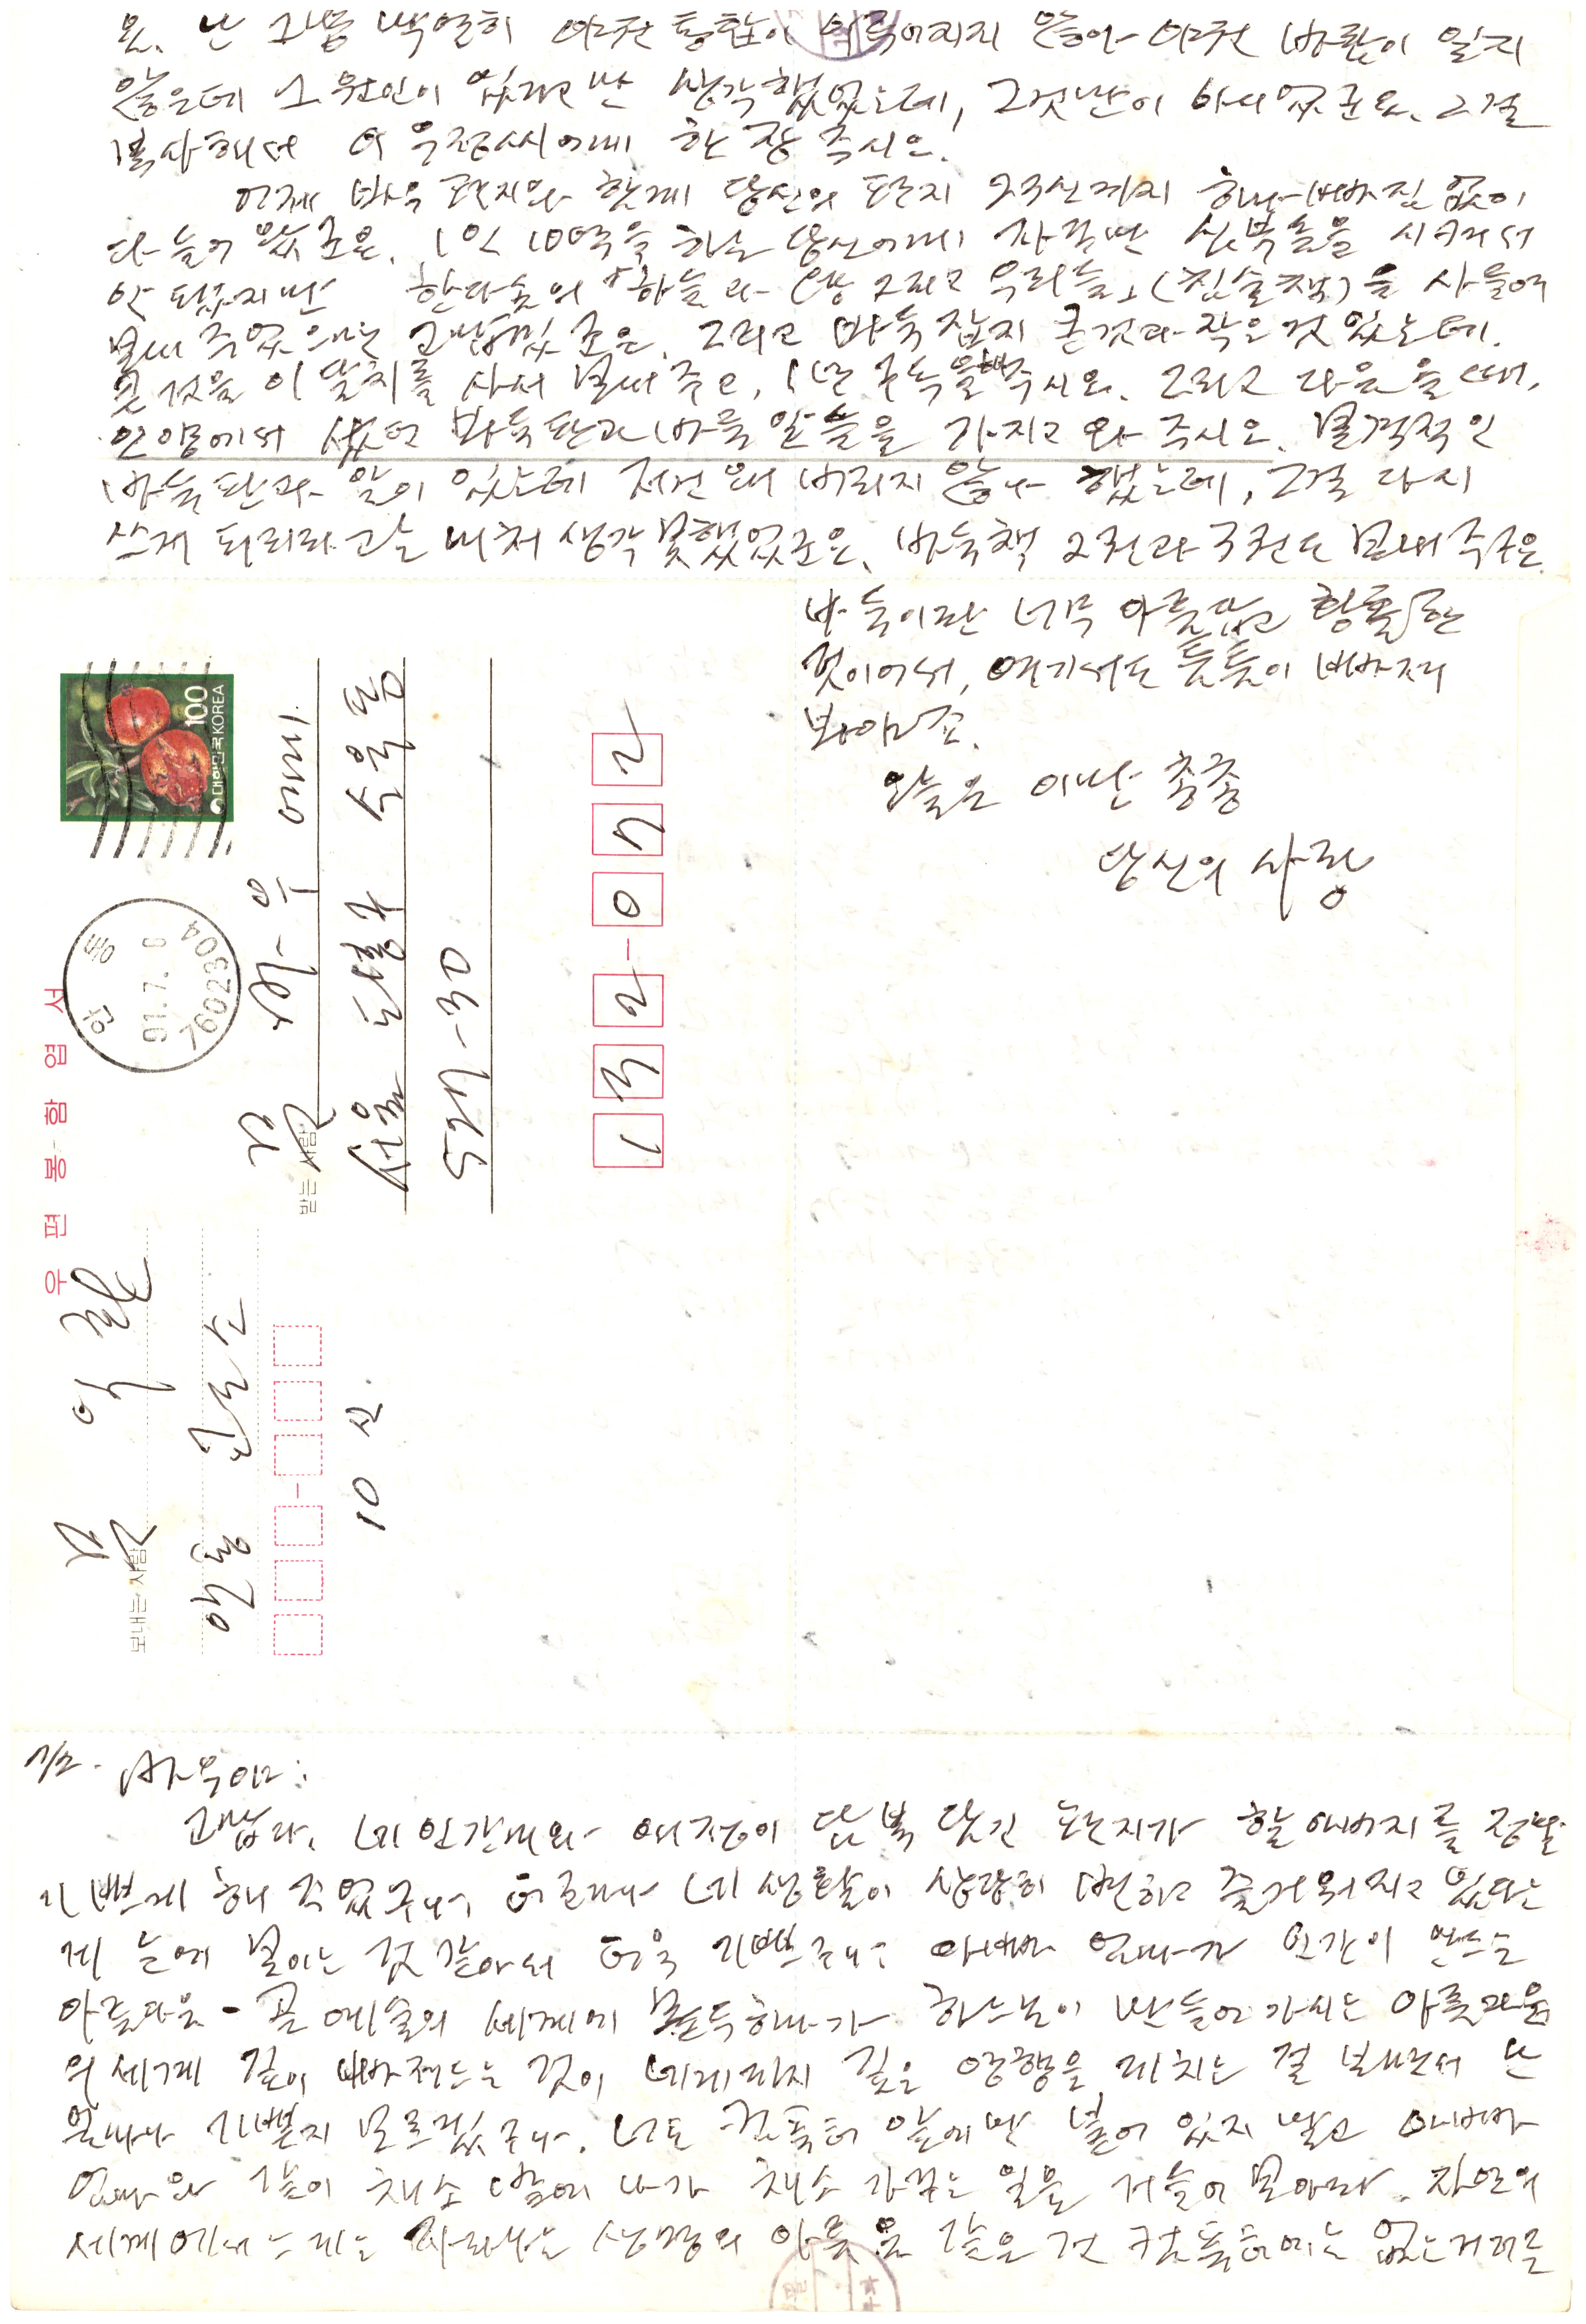 요. 난 그동 백열히 야권 통합이 이루어지지 않아 야권 바람이 일지
않은데 그 원인이 있다고만 생각했었는데, 그것만이 아니었군요. 그걸
복사해서 이우정씨에게 한 장 주시오.
어제 받은 편지와 함께 당신의 편지 23신까지 하나 빠짐없이
다 늘어 있군요. 1인 10역을 하는 당신에게 자꾸만 심부름을 시켜서
안 됐지만 한다솜의 『하늘과 땅 그리고 우리들』(집 술잽)을 사들여
보내 주었으면 고맙겠군요. 그리고 바둑 잡지 큰 것과 작은 것 있는데,
큰 것을 이달치를 사서 보내 주고, 1년 구독을 해 주시오. 그리고 다음 올 때,
안양에서 샀던 바둑판과 바둑알들을 가지고 와 주시오. 본격적인
바둑판과 알이 있는데 저건 왜 버리지 않나 했는데, 그걸 다시
쓰게 되리라고는 미처 생각 못했었군요. 바둑책 2권과 3권도 보내 주구요.
바둑이란 너무 아름답고 황홀한
것이어서, 여기서도 틈틈이 빠져
봐야죠.
오늘은 이만 총총
당신의 사랑
대한민국 KOREA
100
안동
91.7.6
7602304
우편봉함엽서
받는 사람
문 바우 에게
서울 도봉구 수유동
527-30
132-072
보내는 사람
문 익환
안동 교도소
10 신.
7/2. 바우야:
고맙다. 네 인간미와 애정이 담뿍 담긴 편지가 할아버지를 정말
기쁘게 해 주었구나. 더구나 네 생활이 상당히 변하고 즐거워지고 있다는
게 눈에 보이는 것 같아서 더욱 기쁘구나. 아빠 엄마가 인간이 만드는
아름다움-곧 예술의 세계에 몰두하다가 하느님이 만들어 가시는 아름다움
의 세계 깊이 빠져드는 것이 네게까지 깊은 영향을 미치는 걸 보면서 난
얼마나 기쁠지 모르겠구나. 너도 컴퓨터 앞에만 붙어 있지 말고 아빠
엄마와 같이 채소밭에 나가 채소 가꾸는 일을 거들어 보아라. 자연의
세계에서 느끼는 자라나는 생명의 아름다움 같은 건 컴퓨터에는 없는 거거든